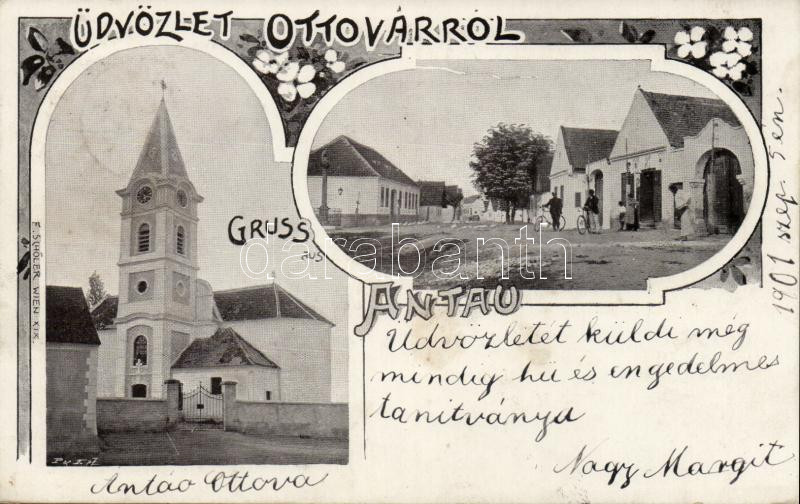 ÜDVÖZLET OTTOVÁRRÓL
GRUSS
aus
ANTAU
darabanth.com
F. SCHÖLER WIEN XIX.
1901 szep. 5 én.
Üdvözletét küldi még
mindig hü és engedelmes
tanitványa
Nagy Margit
Antáo Ottova